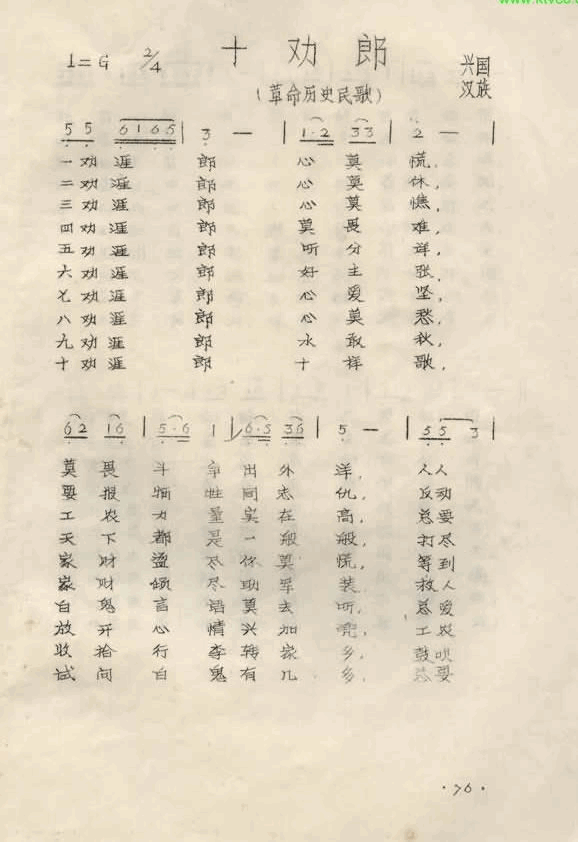 十劝郎
1=G 2/4
(革命历史民歌)
兴国
汉族
5 5 6165 | 3 — | 1·2 33 | 2 — |
一劝涯 郎 心莫慌,
二劝涯 郎 心莫休,
三劝涯 郎 心莫憔,
四劝涯 郎 莫畏难,
五劝涯 郎 听分详,
六劝涯 郎 好主张,
七劝涯 郎 心爱坚,
八劝涯 郎 心莫愁,
九劝涯 郎 水敢秋,
十劝涯 郎 十样歌,
62 16 | 5·6 1 | 6·5 36 | 5 — | 55 3 |
莫畏斗争出外洋, 人人
要报牺牲同志仇, 反动
工农力量实在高, 总要
天下都是一般般, 打尽
家财荡尽你莫慌, 等到
家财倾尽助军装, 救人
白鬼言语莫去听, 总爱
放开心情兴加 工农
收拾行李转家乡, 鼓
试问白鬼有几 总要
·76·